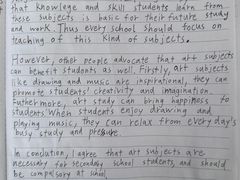 that knowledge and skill students learn from
these subjects is basic for their future study
and work. Thus every school should focus on
teaching of this kind of subjects.
However, other people advocate that art subjects
can benefit students as well. Firstly, art subjects
like drawing and music are inspirational, they can
promote students' creativity and imagination.
Futhermore, art study can bring happiness to
students. When students enjoy drawing and
playing music, they can relax from everyday's
busy study and pressure.
In conclution, I agree that art subjects are
necessary for secondary school students, and should
be compulsory at school.